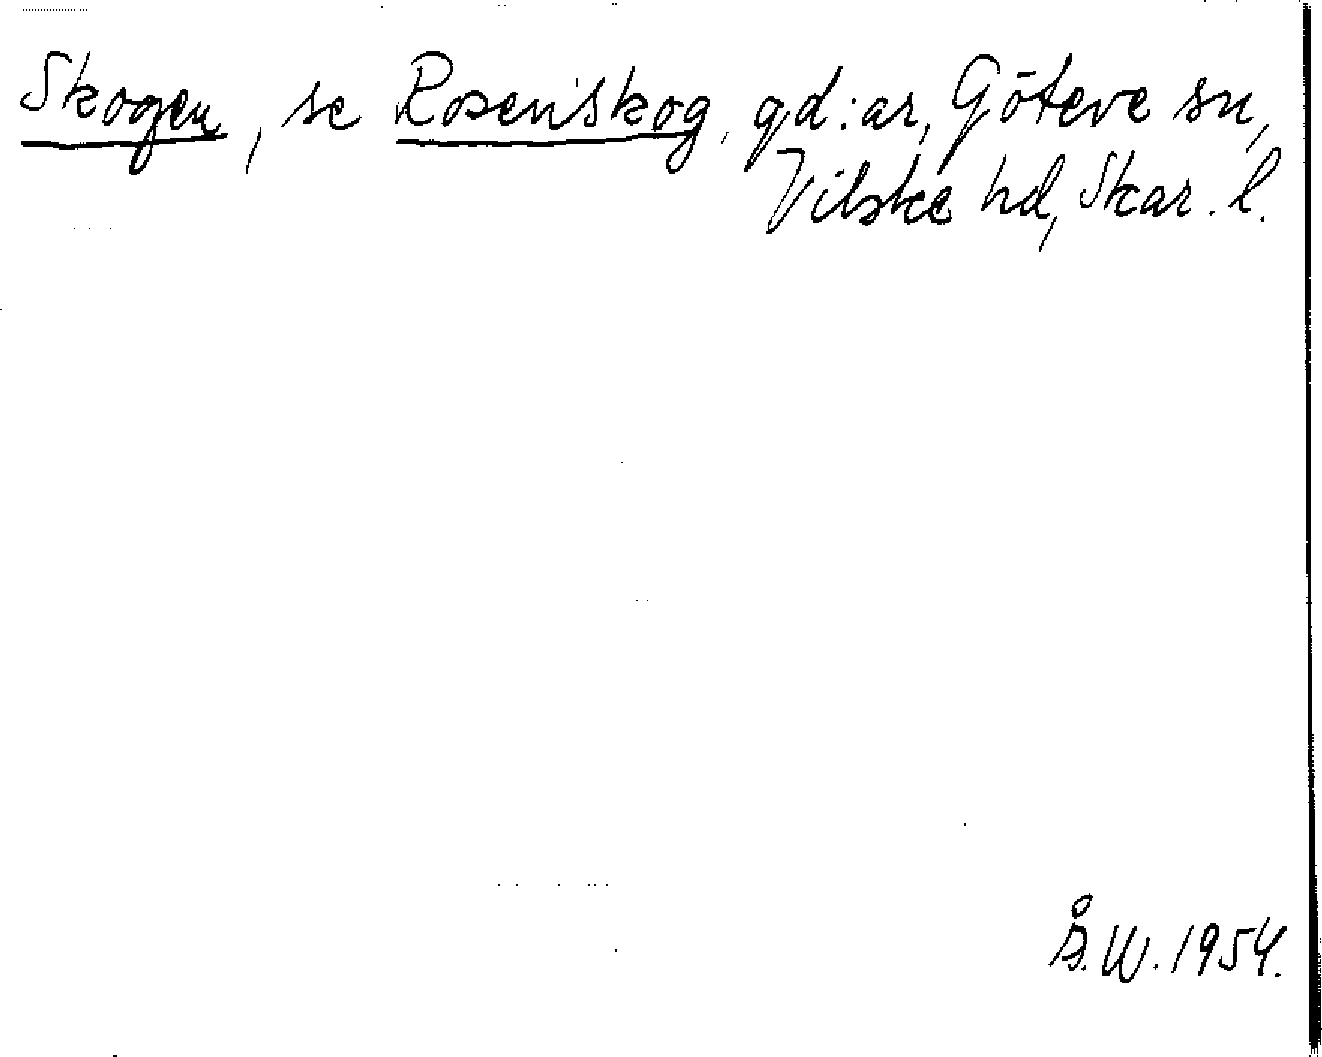 Skogen, se Rosenskog, gd:ar, Göteve sn,
Vilske hd, Skar. l.
Å.W. 1954.